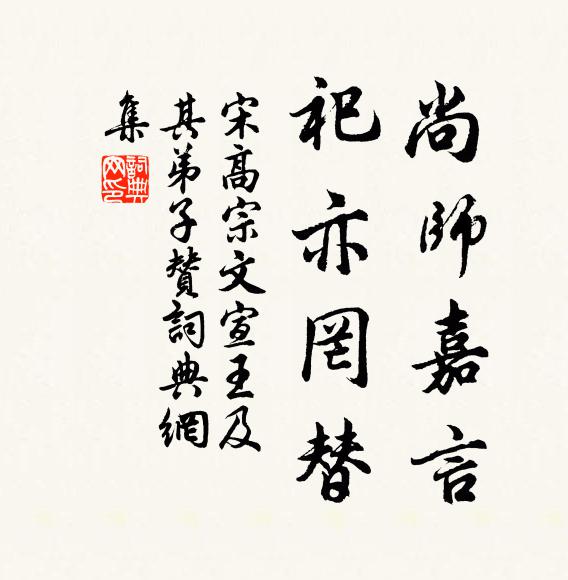 尚師嘉言
祀亦罔替
宋高宗文宣王及
其弟子贊詞典網
集
詞典
网印